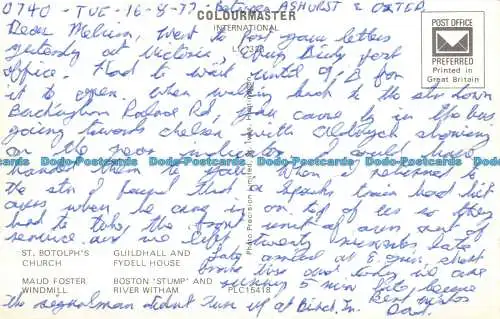 0740 - TUE - 16-8-77 - Between ASHURST & OXTED
COLOURMASTER
INTERNATIONAL
POST OFFICE
PREFERRED
Printed in
Great Britain
Dear Melvin, Went to your letters
yesterday at Victoria
office. Had to wait until 9, 8 for
it to open. When walking back to the stn down
Buckingham Palace Rd, you came by in the bus
going towards Chelsea with Aldwych showing
on the rear indicator. I could have
handed them to you. When I returned to
the stn I found that a train had hit
ours when he came in on top of us so they
had to take the front unit of ours out of
service and we left twenty minutes late
arrived at 8. min. short
time and today we are
running 5 min late, because
the signalman didn't turn up at Birch. In.
Best wishes
Dad.
Photo Precision Limited, St. Ives, Huntingdon
ST. BOTOLPH'S
CHURCH
GUILDHALL AND
FYDELL HOUSE
MAUD FOSTER
WINDMILL
BOSTON 'STUMP' AND
RIVER WITHAM
PLC15418
Dodo-Postcards Dodo-Postcards Dodo-Postcards Dodo-Postcards Dodo-Postcards